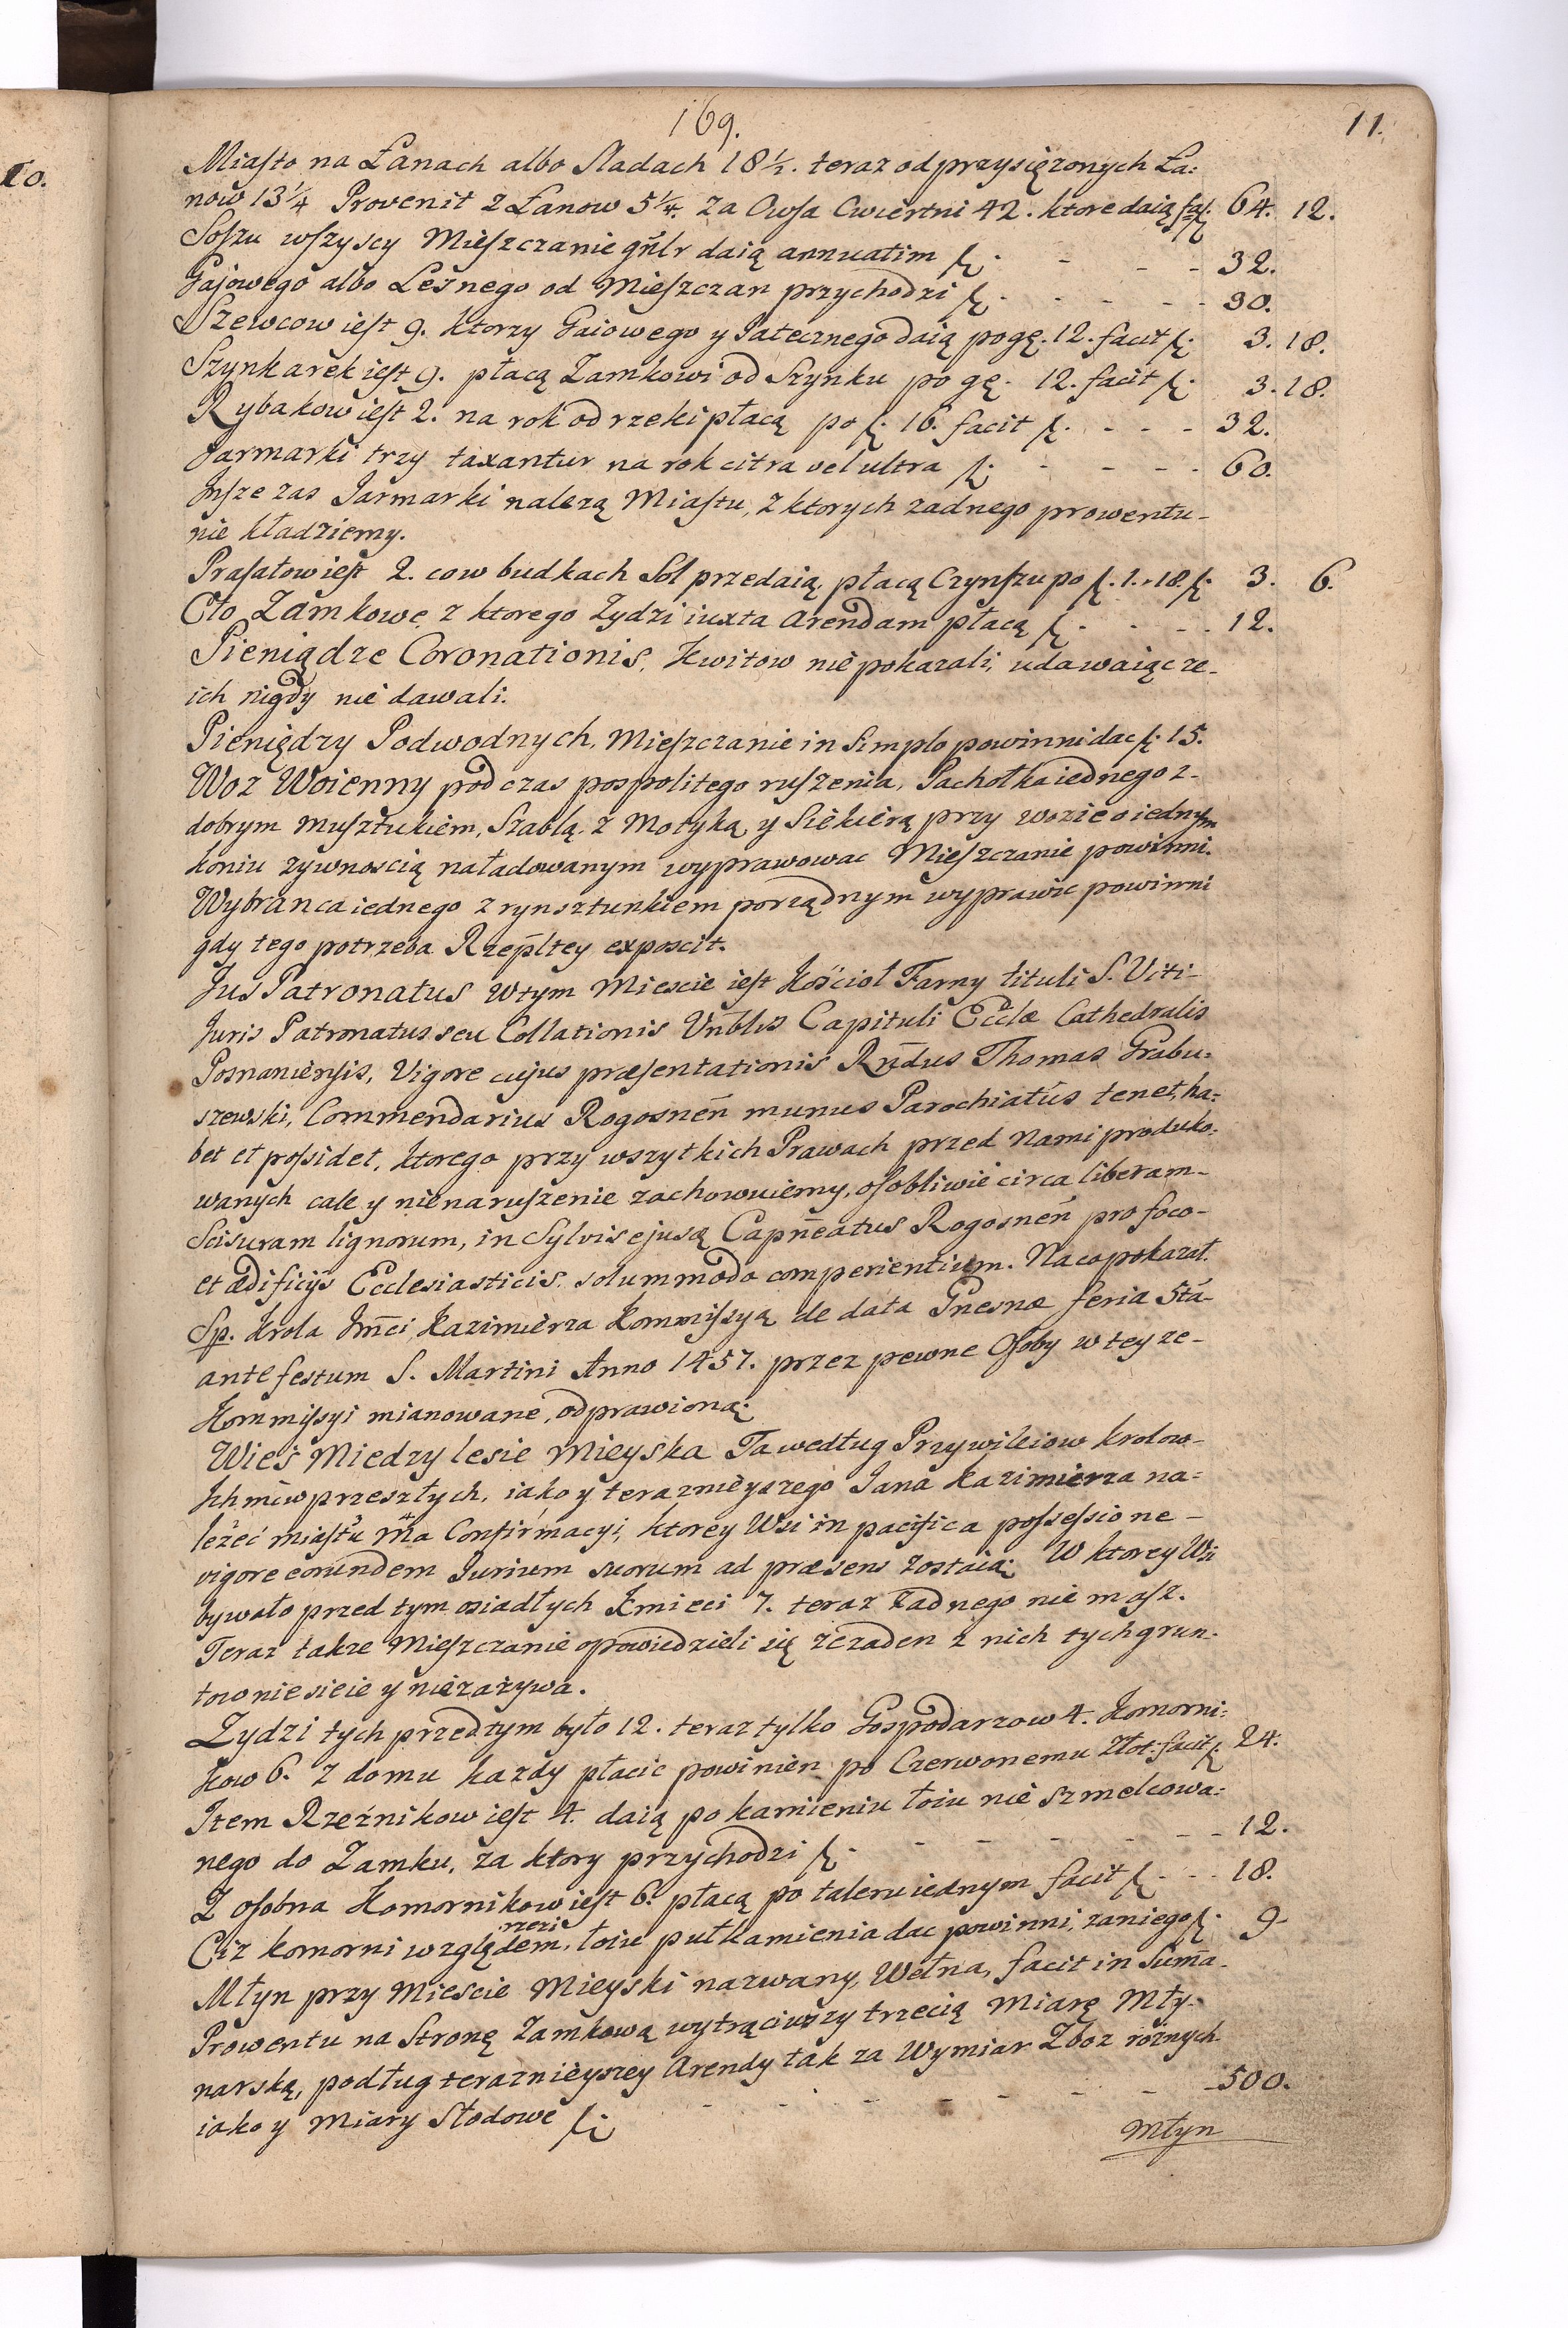 169.
11.
10.
Miasto na Łanach albo Sladach 18½. teraz od przysięzonych Ła:
now 13¼ Provenit z Łanow 5¼. za Owsa Cwiertni 42. ktore daią 64. 12.
Soszu wszyscy Mieszczanie gnlr daią annuatim f. - - - 32.
Gajowego albo Leśnego od Mieszczan przychodzi f. - - - - 30.
Szewcow iest 9. ktorzy Gaiowego y Jatecznego daią po gę. 12. facit f. 3. 18.
Szynkarek iest 9. płacą Zamkowi od Szynku po gę. 12. facit f. 3. 18.
Rybakow iest 2. na rok od rzeki płacą po f. 16. facit f. - - - 32.
Jarmarki trzy taxantur na rok citra vel ultra f. - - - - 60.
Insze zas Jarmarki nalezą Miastu, z ktorych zadnego prowentu-
nie kładziemy.
Prasałow iest 2. co w budkach Sol przedaią, płacą Czynszu po f. 1. 18. f. 3. 6.
Cło Zamkowe z ktorego Zydzi iuxta Arendam płacą f. - - - 12.
Pieniądze Coronationis, Kwitow nie pokazali, udawaiąc ze-
ich nigdy nie dawali.
Pieniędzy Podwodnych, Mieszczanie in Simplo powinni dac f. 15.
Woz Woienny pod czas pospolitego ruszenia, Pachołka iednego z-
dobrym musztukiem, Szablą, z Motyką y Siekierą przy wozie o iednym
koniu zywnoscią naładowanym wyprawowac Mieszczanie powinni.
Wybranca iednego z rynsztunkiem porządnym wyprawic powinni
gdy tego potrzeba Rzepltey exposcit.
Jus Patronatus W tym Miescie iest Kościoł Farny tituli S. Viti-
Juris Patronatus seu Collationis Vnblis Capituli Eccla Cathedralis
Posnaniensis, Vigore cujus præsentationis Rndus Thomas Grabu:
szewski, Commendarius Rogosnen munus Parochiatus tenet, ha:
bet et possidet, ktorego przy wszytkich Prawach przed Nami produko:
wanych cale y nienaruszenie zachowuiemy, osobliwie circa liberam-
Scisuram lignorum, in Sylvis ejusą Capneatus Rogosnen pro foco-
et ædificijs Ecclesiasticis, solummodo comperientium. Na co pokazał.
Sp. Krola Jmci Kazimierza Kommissyą de data Gnesnæ feria 5tâ-
ante festum S. Martini Anno 1457. przez pewne Osoby w tey ze-
Kommissyi mianowane, odprawioną.
Wieś Miedzylesie Mieyska Ta według Przywileiow krolow-
Ichmciw przeszłych, iako y teraznieyszego Jana Kazimierza na=
leżeć miastu ma Confirmacyi, ktorey Wsi in pacifica possessione-
vigore eorundem Jurium suorum ad præsens zostaią. W ktorey Wsi
bywało przed tym osiadłych Kmieci 7. teraz żadnego nie masz.
Teraz takze Mieszczanie opowiedzieli się że zaden z nich tych grun-
tow nie sieie y niezażywa.
Zydzi tych przedtym było 12. teraz tylko Gospodarzow 4. Komorni:
kow 6. z domu kazdy płacic powinien po Czerwonemu Złot: facit f. 24.
Item Rzeźnikow iest 4. daią po kamieniu łoiu nie szmelcowa:
nego do Zamku, za ktory przychodzi f. - - - - - - 12.
Z osobna Komornikow iest 6. płacą po taleru iednym facit f. - - - 18.
Ciz komorni względem rzezi, łoiu puł kamienia dac powinni, za niego f. 9-
Młyn przy Miescie Mieyski nazwany, Wełna, facit in Suma-
Prowentu na Stronę Zamkową wytrąciwszy trzecią Miarę Mły-
narską, podług teraznieyszey Arendy tak za Wymiar Zboz roznych
iako y Miary Słodowe f. - - - - - - 500.
Młyn